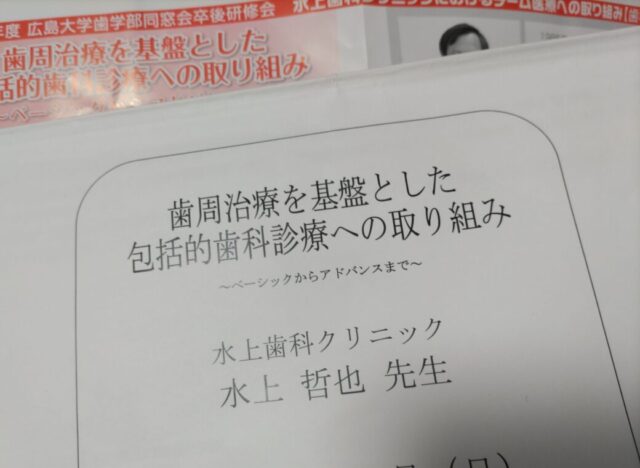 年度 広島大学歯学部同窓会卒後研修会
水上歯科クリニックにおけるチーム医療への取り組み
歯周治療を基盤とした
括的歯科診療への取り組み
歯周治療を基盤とした
包括的歯科診療への取り組み
～ベーシックからアドバンスまで～
水上歯科クリニック
水上 哲也 先生
(日)